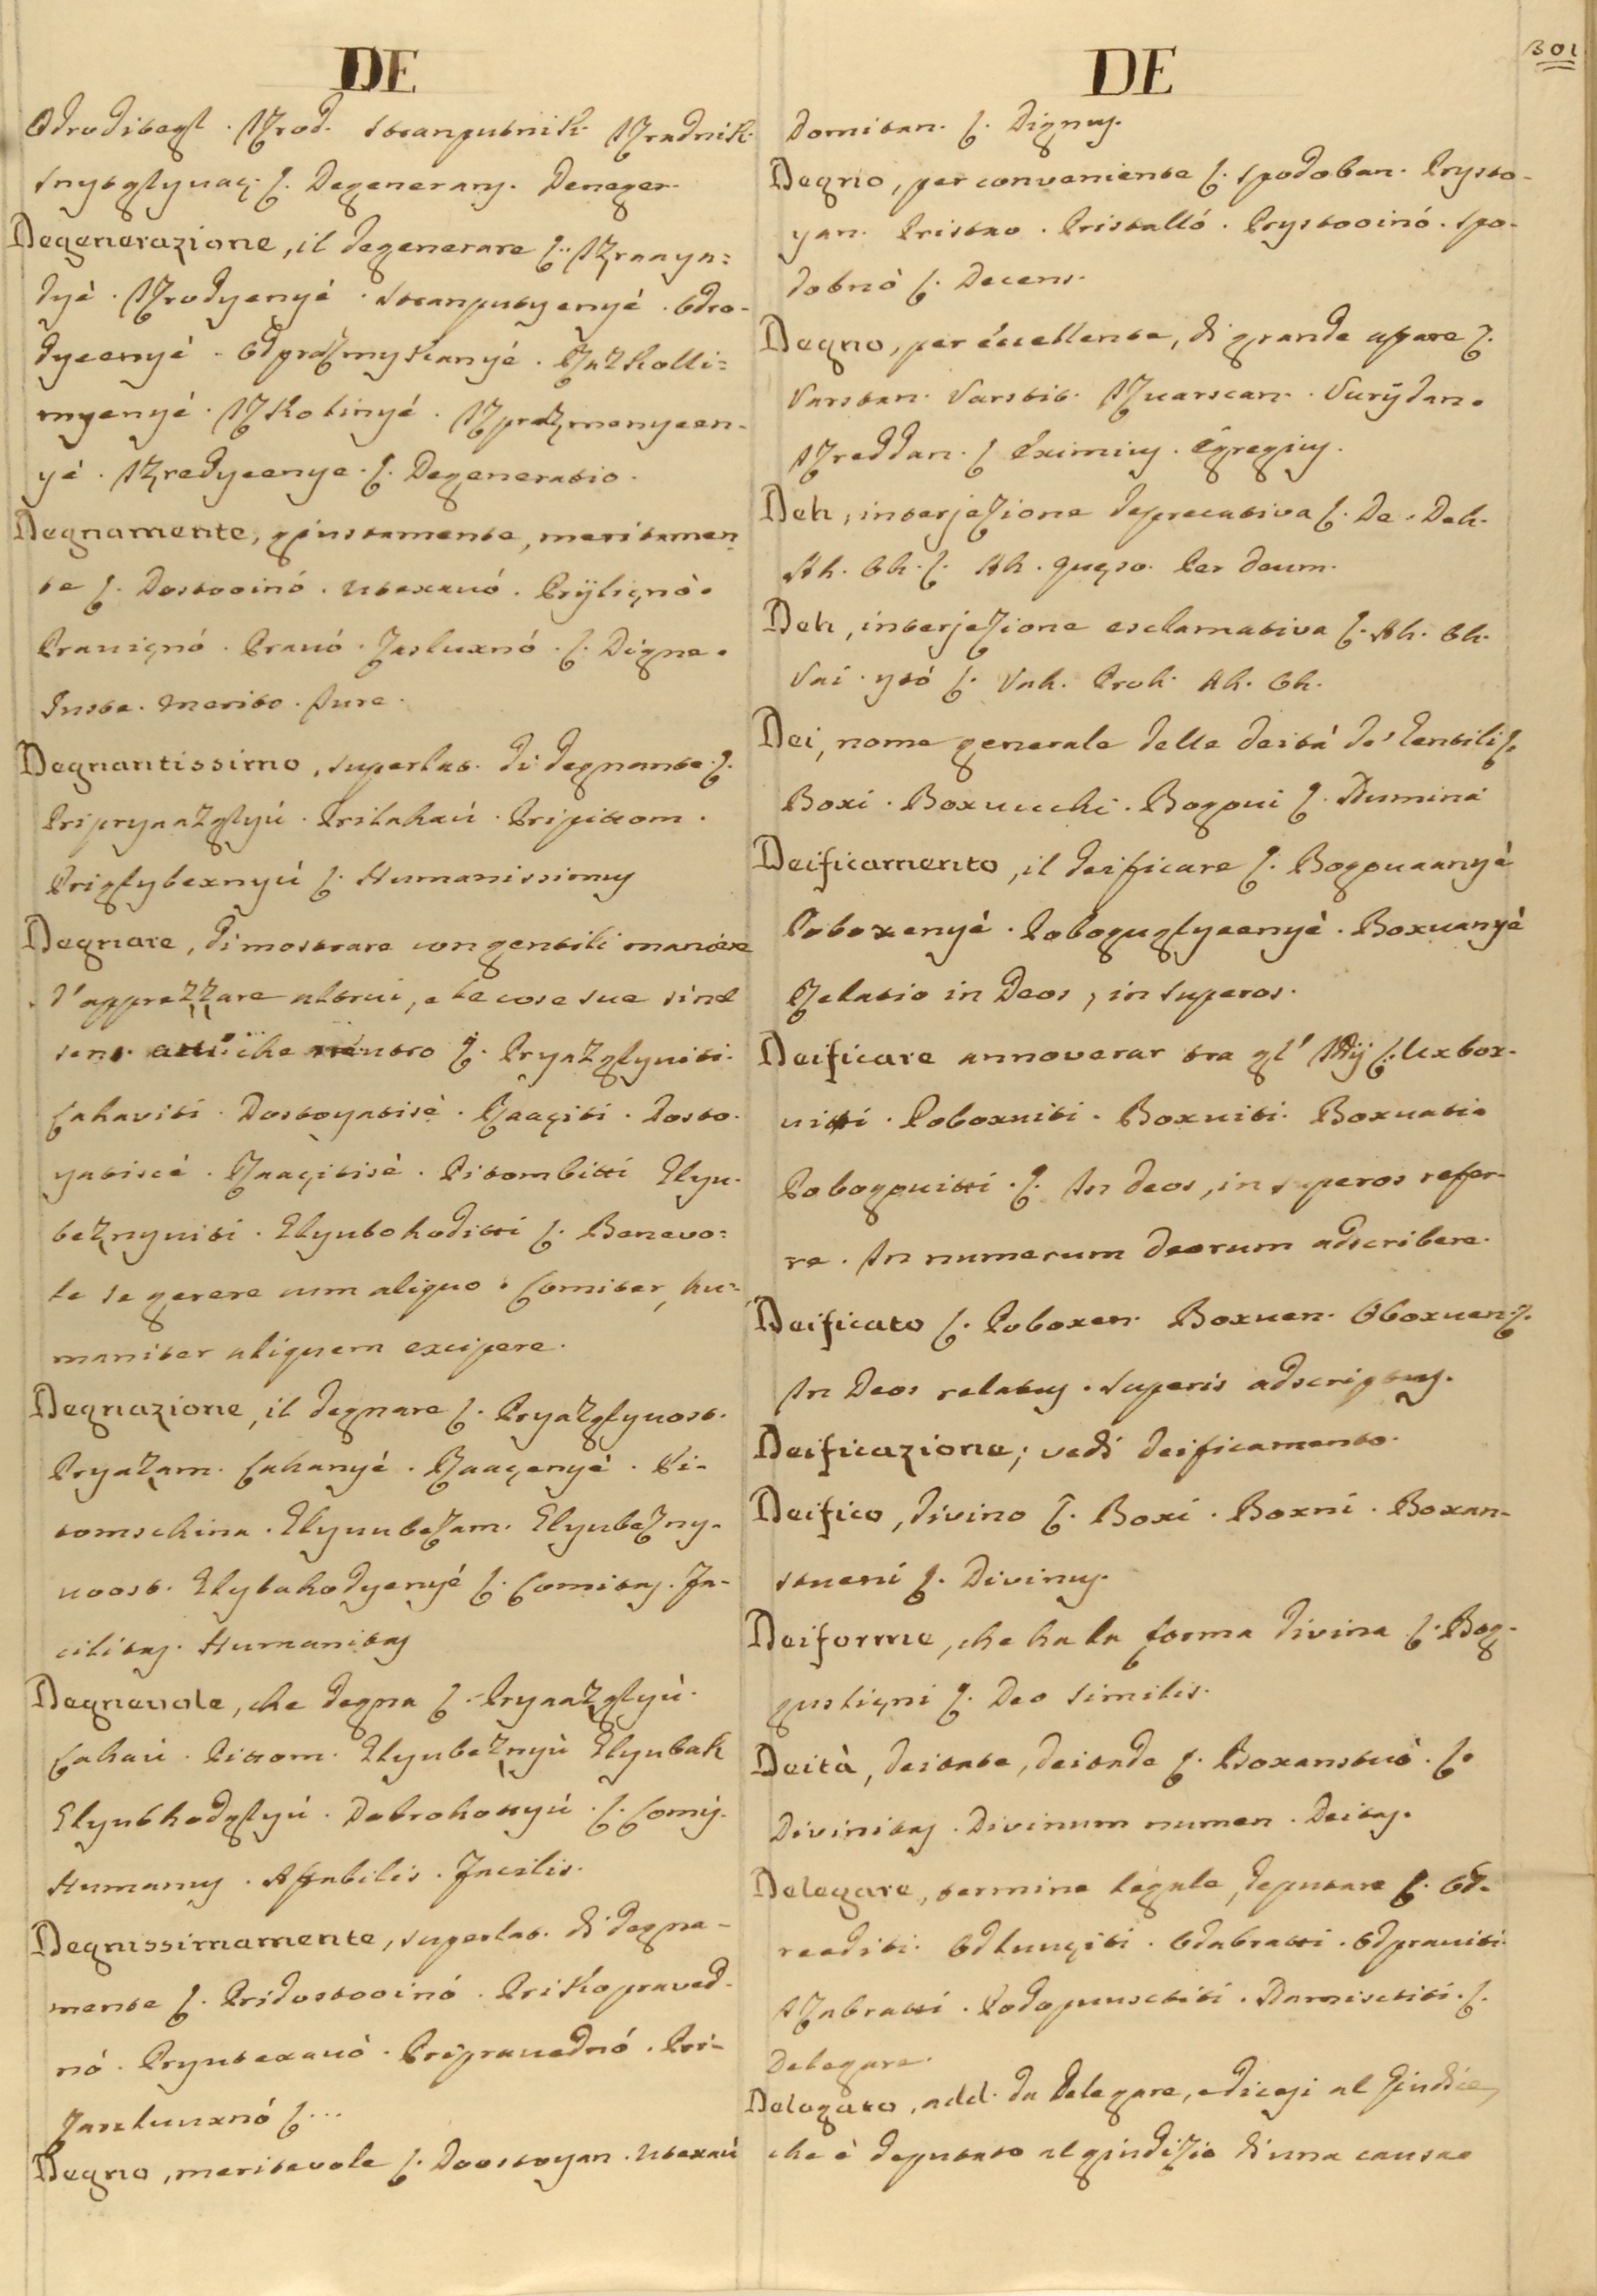 301
DE
Odroditegl. Izrod. stranputnik. Izradnik.
Degenerans. Deneger.
Degenerazione, il degenerare ſ.
dyé. Izrodyenyé. stranputyenyé. Odro-
dyeenyé.
myenyé. Izkotinyé.
yé. Izredyeenye. ſ. Degeneratio.
Degnamente, giustamente, meritamen-
te ſ. Dostooinó. utexauó. Prÿliçnò.
Prauiçnó. Prauó. Zasluxnó. ſ. Digne.
Iuste. Merito. Jure.
Degnantissimo, superlat. di degnante. ſ.
Pripryaazglyú. Prilahaú. Pripittom.
Priglybexnyú ſ. Humanissimus
Degnare, dimostrare con gentili maniere
d'apprezzare altrui, e le cose sue
che ſ. Pryazglyuiti.
Lahaviti. Dostoyatisè. Raaçiti. Dosto-
yatisé. Raaçitisè. Pitombitti Glyu-
beznyuiti. Glyubohoditti ſ. Benevo-
le se gerere cum aliquo. Comiter, hu-
maniter aliquem excipere.
Degnazione, il degnare ſ. Pryazglyuost.
Pryazam. Lahanyé. Raaçenyé. Pi-
tomschina. Glyuubezam. Glyubezny-
uoost. Glybahodyenyé ſ. Comitas. Fa-
cilitas. Humanitas
Degnevole, che degna ſ. Pryaazglyù.
Lahaú. Pittom. Glyubeznyù Glyubak
Glyubhodglyú. Dobrohottyú. ſ. Comis.
Humanus. Affabilis. Facilis.
Degnissimamente, superlat. di degna-
mente ſ. Pridostooinó. Prikopraved-
nó. Pryutexauò. Pripravednó. Pri-
zasluuxnó ſ...
Degno, meritevole ſ. Doostoyan. utexaú
DE
Domitan. ſ. Dignus.
Degno, per conveniente ſ. spodoban. Prysto-
yan. Pristao. Pristalló. Prystooinó. spo-
dobnò ſ. Decens.
Degno, per eccellente, di grande afare ſ.
Varstan. Varstit. Izuarscan. Vurÿdan.
Izreddan. ſ Eximius. Egregius.
Deh, interjezione deprecativa ſ. De. Deh.
Ah. Oh. ſ. Ah. quęso. Per Deum.
Deh, interjezione esclamativa ſ. Ah. Oh.
Vai. ytó ſ. Vah. Proh. Ah. Oh.
Dei, nome generale delle deitá de' Gentili ſ.
Boxi. Boxuicchi. Bogoui ſ. Numina
Deificamento, il deificare ſ. Bogouaanyè
Poboxenyé. Poboguglyeenyè. Boxuanyè
Relatio in Deos, in superos.
Deificare annoverar tra gl' Iddÿ ſ. Uxbox-
uitti. Poboxuiti. Boxuiti. Boxuati.
Pobogouitti. ſ. In deos, in superos refer-
re. In numerum deorum adscribere.
Deificato ſ. Poboxen. Boxuen. Oboxuen. ſ.
In Deos relatus. superis adscriptus.
Deificazione; vedi deificamento.
Deifico, divino ſ. Boxi. Boxni. Boxan-
stueni ſ. Divinus.
Deiforme, che ha la forma divina ſ. Bog-
guliçni ſ. Deo similis.
Deità, deitate, deitade ſ. Boxanstuò. ſ.
Divinitas. Divinum numen. Deitas.
Delegare, termine legale, deputare ſ. Od-
reediti. Odluuçiti. Odabratti. Odprauiti.
Izabratti. Podopuusctiti. Namisctiti. ſ.
Delegare.
Delegato, add. da Delegare, e dicesi al Giudice,
che è deputato al giudizio di una causa.